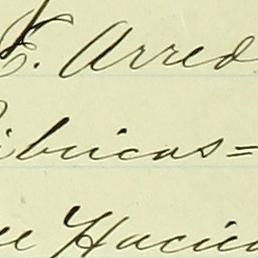 E. Arred
ibricas=
ue Hacien